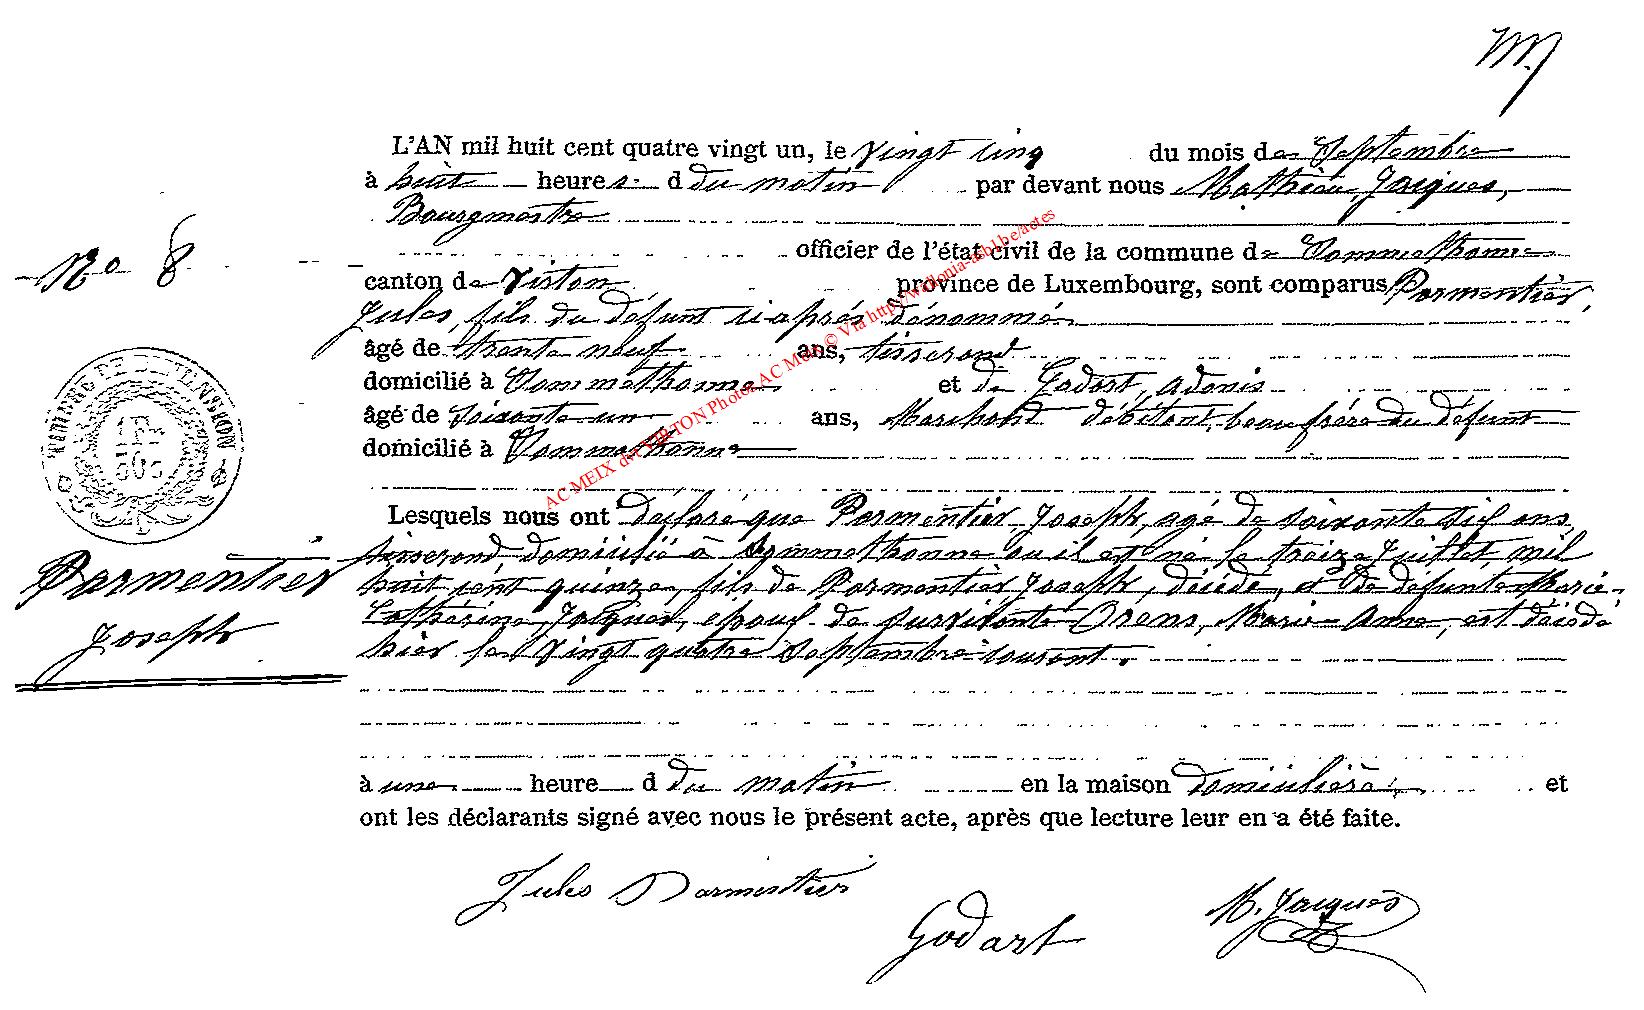 M.J
L'AN mil huit cent quatre vingt un, le vingt cinq du mois de Septembre
à huit heures d du matin par devant nous Mathieu Jacques,
Bourgmestre
N° 8
officier de l'état civil de la commune de Sommethonne
canton de Virton province de Luxembourg, sont comparus Parmentier,
Jules, fils du défunt ci après dénommé
âgé de trente neuf ans, tisserand
domicilié à Sommethonne et de Godart, Adonis
âgé de soixante un ans, Marchand débitant, beau frère du défunt
domicilié à Sommethonne
TIMBRE DE DIMENSION
AC MEIX dvt VIRTON Photos AC Meix © Via http://wallonia-asbl.be/actes
Lesquels nous ont déclaré que Parmentier Joseph, agé de soixante six ans
tisserand, domicilié à Sommethonne ou il est né le treize Juillet, mil
huit cent quinze, fils de Parmentier Joseph, décédé, et de défunte Marie-
Catherine Jacques, epoux de survivante Orens, Marie-Anne, est décédé
hier le vingt quatre Septembre courant.
Parmentier
Joseph
à une heure d du matin en la maison domicilière, et
ont les déclarants signé avec nous le présent acte, après que lecture leur en a été faite.
Jules Parmentier
Godart
M. Jacques